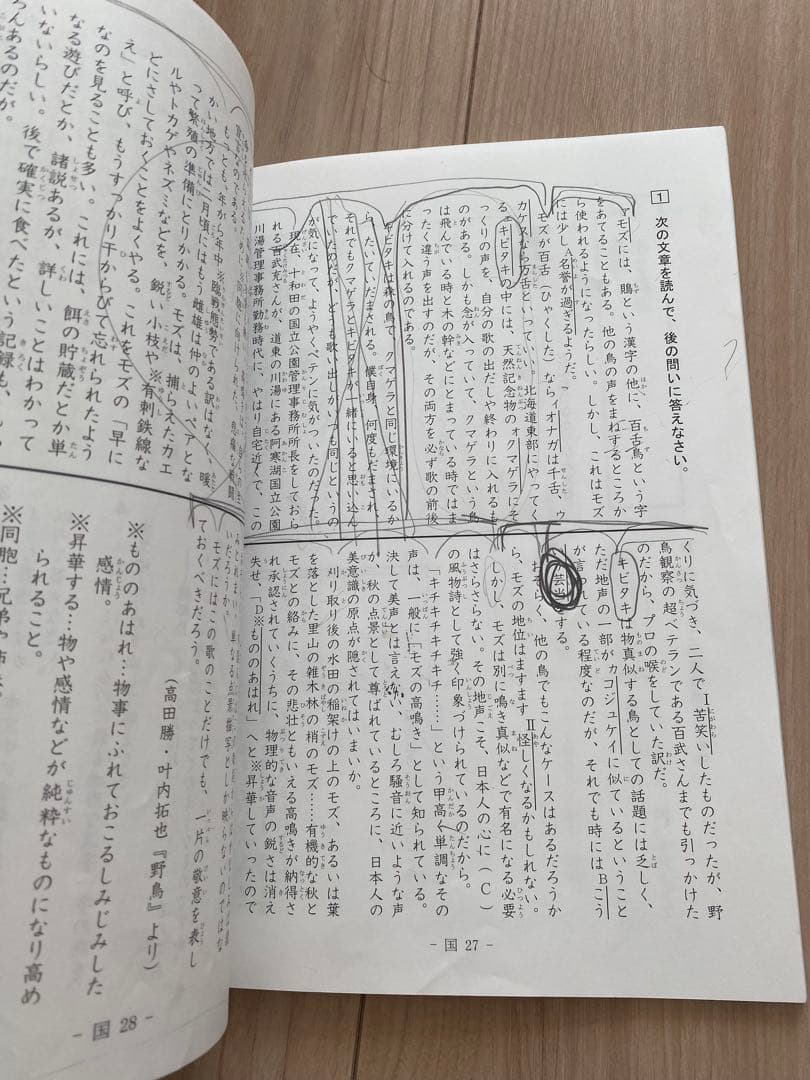 1 次の文章を読んで、後の問いに答えなさい。
モズには、鵙という漢字の他に、百舌鳥という字
をあてることもある。他の鳥の声をまねするところか
ら使われるようになったらしい。しかし、これはモズ
には少しA名誉が過ぎるようだ。
モズが百舌(ひゃくした)ならイオナガは千舌、ウ
カケスなら万舌といっていい。北海道東部にやってく
るエキビタキの中には、天然記念物のオクマゲラにそ
っくりの声を、自分の歌の出だしや終わりに入れるも
のがある。しかも念が入っていて、クマゲラという鳥
は飛んでいる時と木の幹などにとまっている時ではま
ったく違う声を出すのだが、その両方を必ず歌の前後
に分けて入れるのである。
キビタキは森の鳥で、クマゲラと同じ環境にいるか
ら、たいていだまされる。僕自身、何度もだまされ、
それでもクマゲラとキビタキが一緒にいると思い込ん
でいたのだが、どうも歌い出しがいつも同じというの
が気になって、ようやくペテンに気がついたのだった。
現在、十和田の国立公園管理事務所所長をしておら
れる百武充さんが、道東の川湯にある阿寒湖国立公園
川湯管理事務所勤務時代に、やはり自宅近くで、この
くりに気づき、二人でI苦笑いしたものだったが、野
鳥観察の超ベテランである百武さんまでも引っかけた
のだから、プロの喉をしていた訳だ。
キビタキは物真似する鳥としての話題には乏しく、
ただ地声の一部がカコジュケイに似ているということ
が言っている程度なのだが、それでも時にはBこう
芸当する。
おそらく、他の鳥でもこんなケースはあるだろうか
ら、モズの地位はますますⅡ怪しくなるかもしれない。
しかし、モズは別に鳴き真似などで有名になる必要
はさらさらない。その地声こそ、日本人の心に(C)
の風物詩として強く印象づけられているのだから。
「キチキチキチキチ……」という甲高く単調なその
声は、一般に「モズの高鳴き」として知られている。
決して美声とは言えない、むしろ騒音に近いような声
が、秋の点景として尊ばれているところに、日本人の
美意識の原点が隠されてはいまいか。
刈り取り後の水田の稲架けの上のモズ、あるいは葉
を落とした里山の雑木林の梢のモズ……有機的な秋と
モズとの絡みに、その悲壮ともいえる高鳴きが納得さ
れ承認されていくうちに、物理的な音声の鋭さは消え
失せ、「D※もののあはれ」へと※昇華していったので
- 国 27 -
もっとも、年から年中※臨戦態勢である訳はなく、暖
かい地方では二月頃にはもう雌雄は仲のよいペアとな
って繁殖の準備にとりかかる。モズは、捕らえたカエ
ルやトカゲやネズミなどを、鋭い小枝や※有刺鉄線な
どにさしておくことをよくやる。これをモズの「早に
え」と呼び、もうすっかり干からびて忘れられたよう
なのを見ることも多い。これには、餌の貯蔵だとか単
なる遊びだとか、諸説あるが、詳しいことはわかって
いないらしい。後で確実に食べたという記録も、
ろんあるのだが。
いだろうか。
モズにはこの歌のことだけでも、一片の敬意を表し
ておくべきだろう。
(高田勝・叶内拓也『野鳥』より)
※もののあはれ…物事にふれておこるしみじみした
感情。
※昇華する…物や感情などが純粋なものになり高め
られること。
※同胞…兄弟や姉妹
- 国 28 -